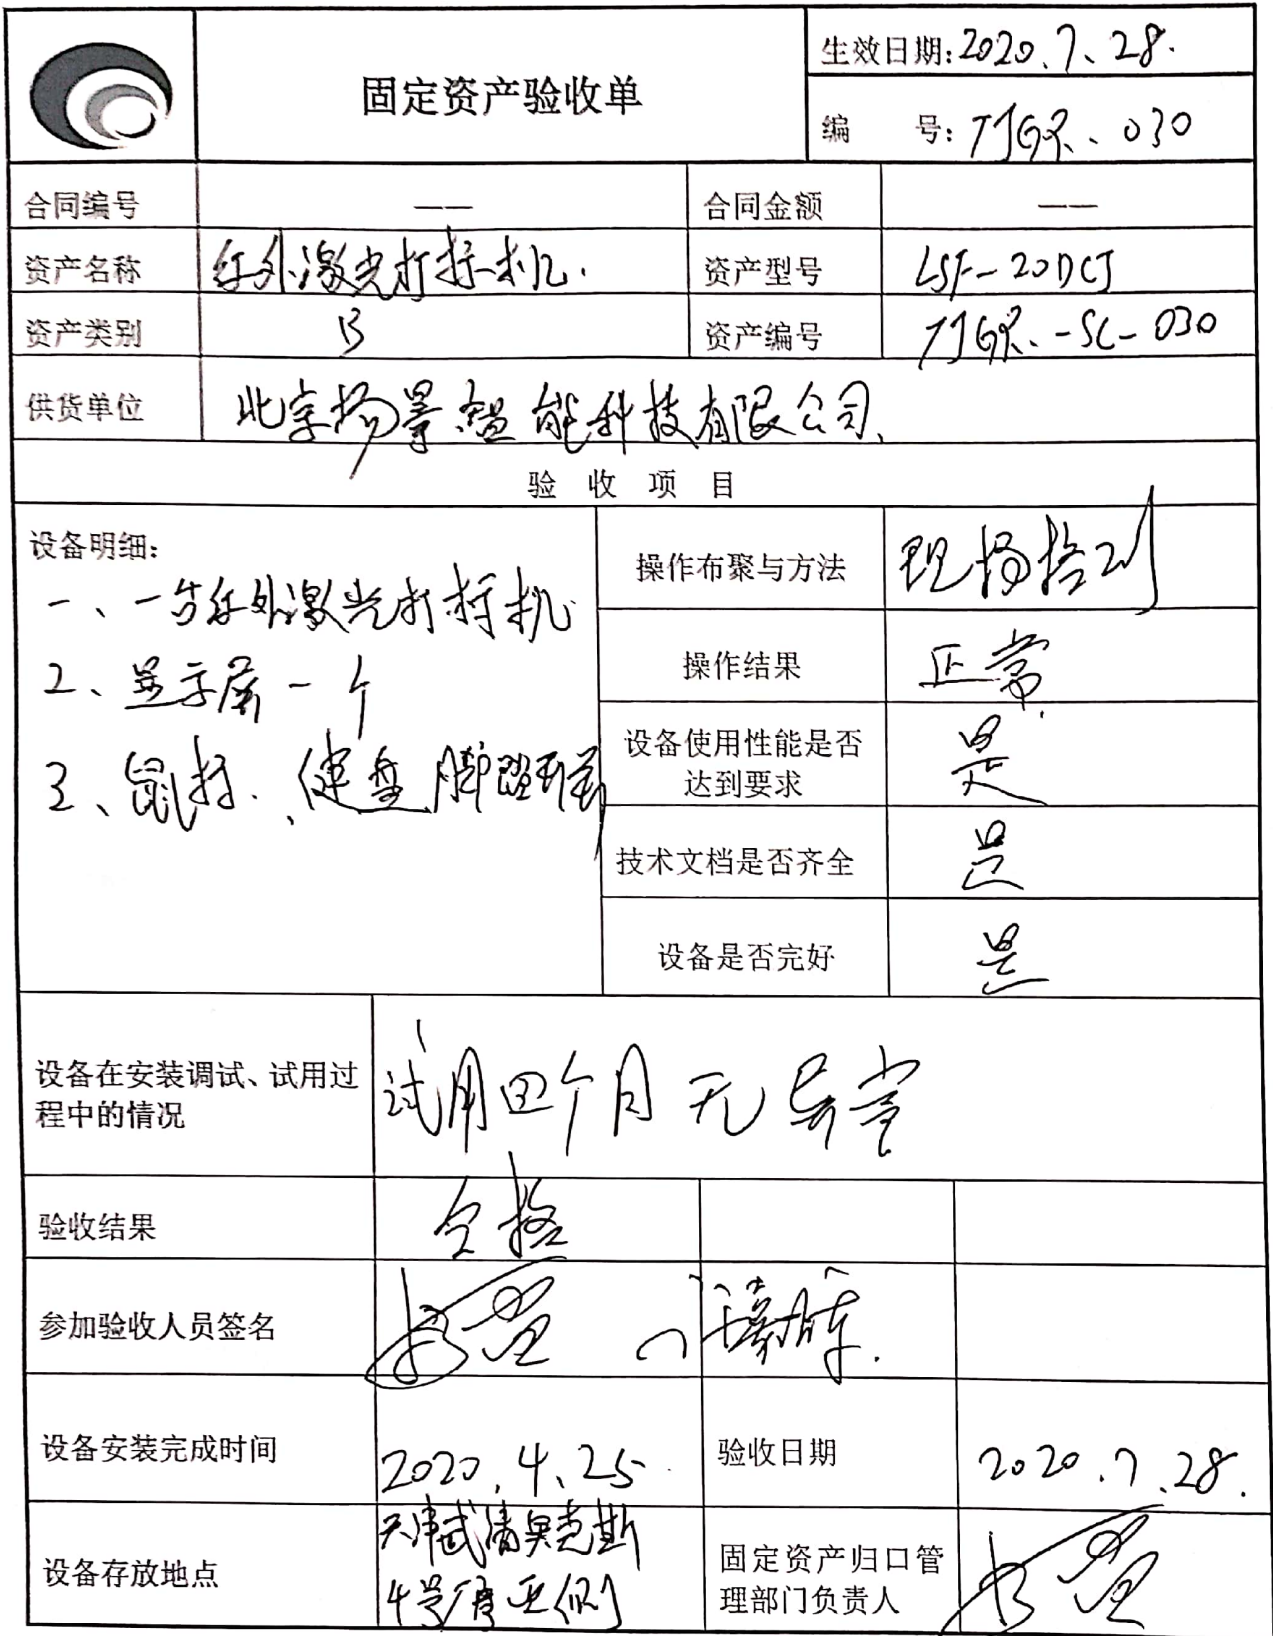 固定资产验收单
生效日期:2020.7.28.
编 号: TJGR-030
合同编号 —— 合同金额 ——
资产名称 红外激光打标机. 资产型号 LSF-20DCJ
资产类别 B 资产编号 TJGR-SC-030
供货单位 北京扬景智能科技有限公司
验 收 项 目
设备明细:
一、一台红外激光打标机
2、显示屏一个
3、鼠标、键盘、脚踏
操作布聚与方法 现场培训
操作结果 正常
设备使用性能是否
达到要求 是
技术文档是否齐全 是
设备是否完好 是
设备在安装调试、试用过
程中的情况
试用四个月无异常
验收结果 合格
参加验收人员签名
设备安装完成时间 2020.4.25 验收日期 2020.7.28.
设备存放地点
天津武清奥克斯
4号厂房西侧
固定资产归口管
理部门负责人